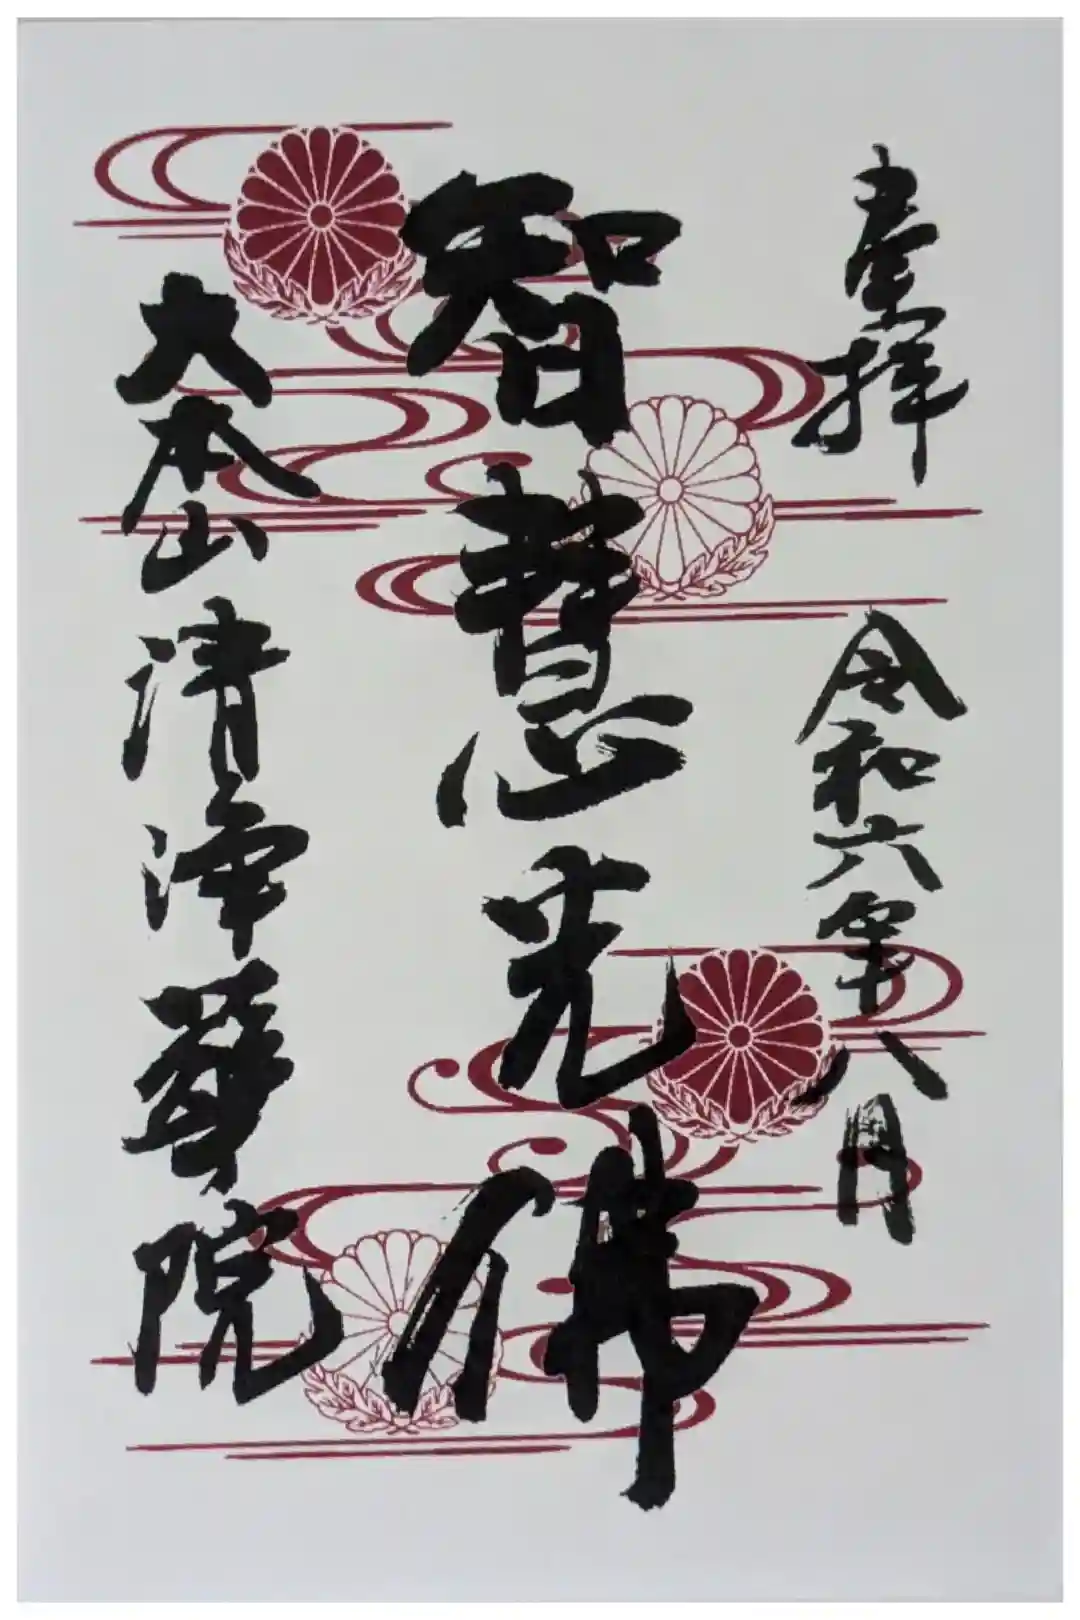 奉拝
令和六年八月
智慧光佛
大本山清浄華院